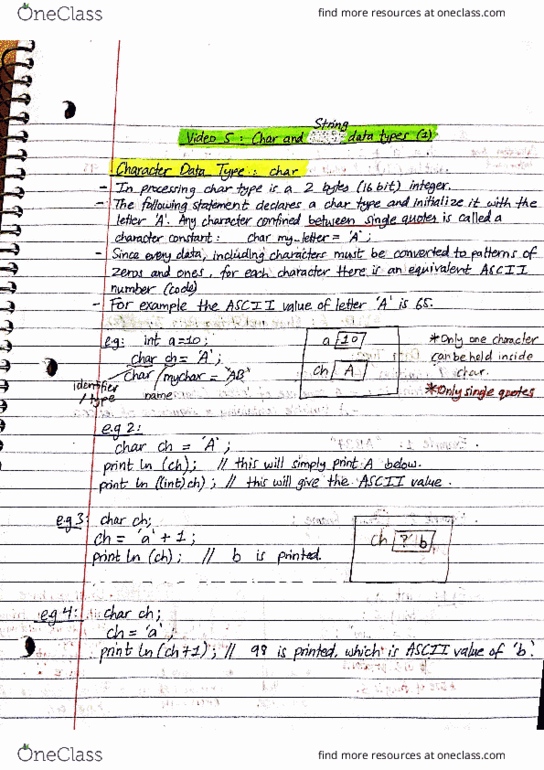 OneClass
find more resources at oneclass.com
String
Video 5 : Char and data types (1)
Character Data Type : char
- In processing char type is a 2 bytes (16 bit) integer.
- The following statement declares a char type and initialize it with the
letter 'A'. Any character confined between single quotes is called a
character constant : char my_letter = 'A' ;
- Since every data, including characters must be converted to patterns of
zeros and ones, for each character there is an equivalent ASCII
number (code)
- For example the ASCII value of letter 'A' is 65.
eg: int a=10 ;
char ch = 'A' ;
char mychar = 'AB'
identifier
/ type
name
a 10
ch A
*Only one character
can be held incide
char.
*Only single quotes
e.g 2:
char ch = 'A' ;
print ln (ch) ; // this will simply print A below.
print ln ((int) ch) ; // this will give the ASCII value .
e.g 3: char ch;
ch = 'a' + 1 ;
print ln (ch) ; // b is printed.
ch ? b
e.g 4: char ch;
ch = 'a' ;
print ln (ch+1) ; // 98 is printed, which is ASCII value of 'b'.
OneClass
find more resources at oneclass.com